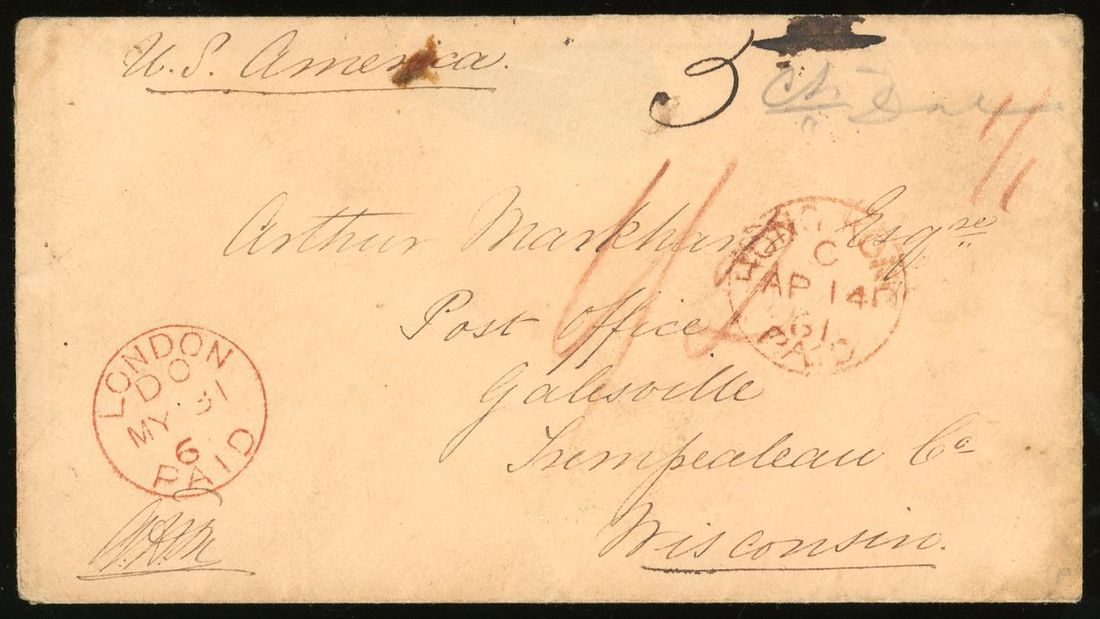 U.S. America.
5
1/1
Arthur Markham Esqre
Post Office
Galesville
Trempealeau Co
Wisconsin.
HONG KONG
C
AP 14
61
PAID
LONDON
DO
MY 31
6
PAID